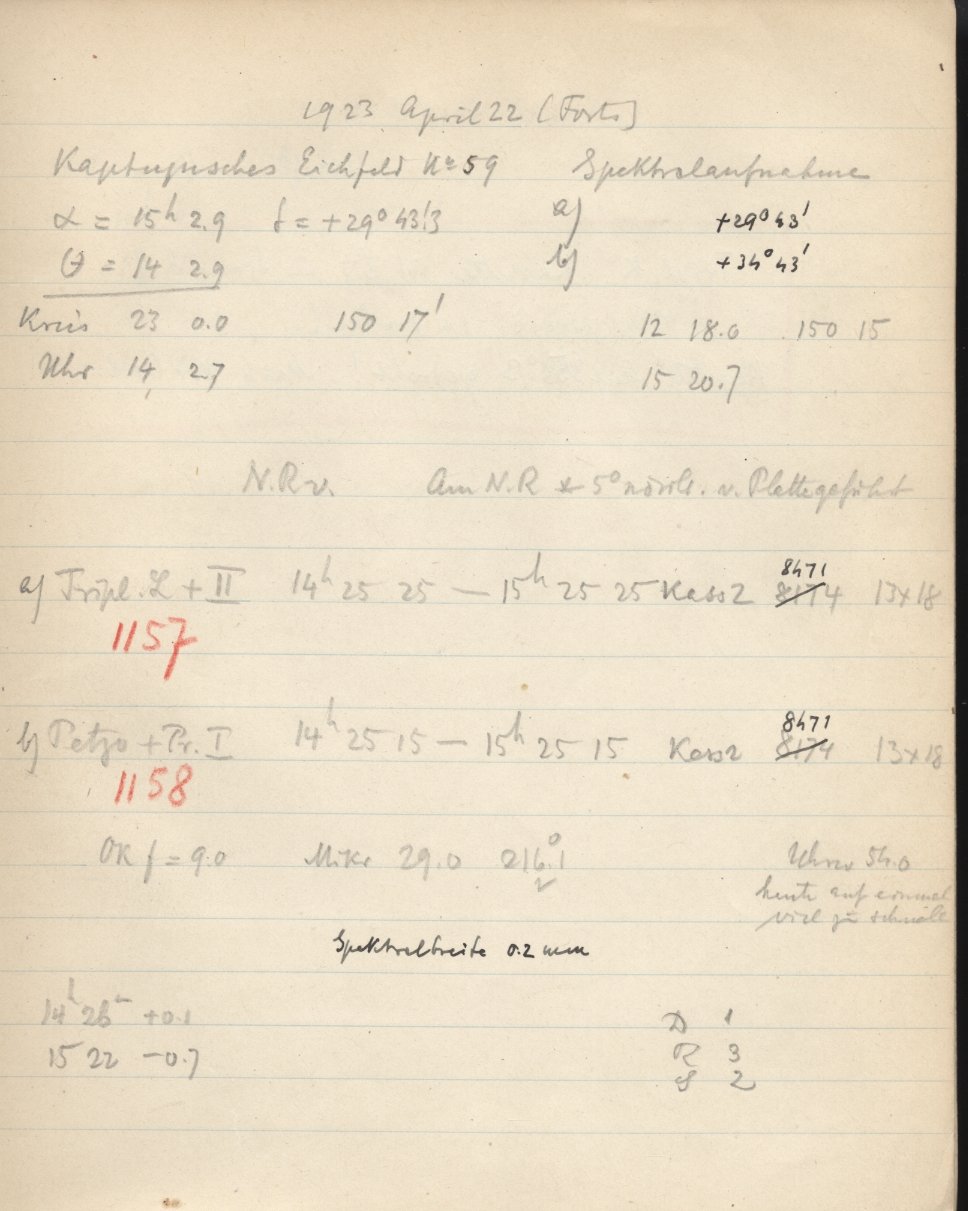 1923 April 22 (Forts)
Kapteynsches Eichfeld Nr 59 Spektralaufnahme
α = 15h 2.9 δ = +29° 43!3 a) +29° 43'
θ = 14 2.9 b) +34° 43'
Kreis 23 0.0 150 17' 12 18.0 150 15
Uhr 14 2.7 15 20.7
N.R v. Am N.R * 5° nördl. v. Platte geführt
a) Tripl. + II 14h 25 25 — 15h 25 25 Kass 2 8471 8174 13x18
1157
b) Petzv + Pr. I 14h 25 15 — 15h 25 15 Kass 2 8471 8174 13x18
1158
OK f = 9.0 Mikr 29.0 216.1° 54.0
heute auf einmal
viel zu schnell
Spektralbreite 0.2 mm
14h 26m +0.1 D 1
15 22 -0.7 R 3
S 2